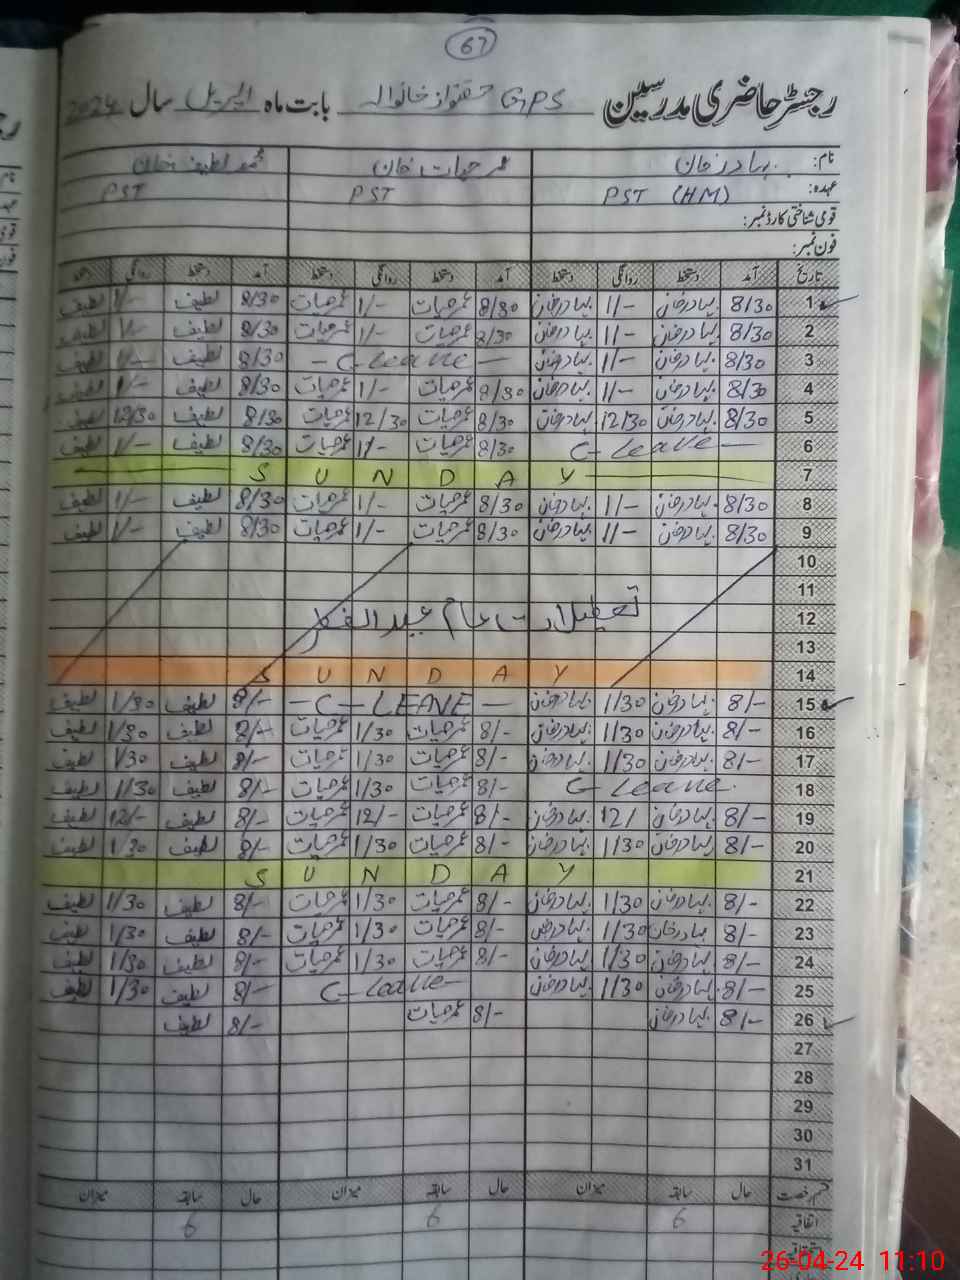 67
رجسٹر حاضری مدرسین GPS حقنواز خانوالہ بابت ماہ اپریل سال 2024
نام: بہادر خان عمر حیات خان محمد لطیف خان
عہدہ: PST (HM) PST PST
قومی شناختی کارڈ نمبر:
فون نمبر:
تاریخ آمد دستخط روانگی دستخط آمد دستخط روانگی دستخط آمد دستخط روانگی دستخط
1 8/30 بہادر خان 1/- بہادر خان 8/30 عمر حیات 1/- عمر حیات 8/30 لطیف 1/- لطیف
2 8/30 بہادر خان 1/- بہادر خان 8/30 عمر حیات 1/- عمر حیات 8/30 لطیف 1/- لطیف
3 8/30 بہادر خان 1/- بہادر خان - C-Leave - 8/30 لطیف 1/- لطیف
4 8/30 بہادر خان 1/- بہادر خان 8/30 عمر حیات 1/- عمر حیات 8/30 لطیف 1/- لطیف
5 8/30 بہادر خان 12/30 بہادر خان 8/30 عمر حیات 12/30 عمر حیات 8/30 لطیف 12/30 لطیف
6 C-Leave - 8/30 عمر حیات 1/- عمر حیات 8/30 لطیف 1/- لطیف
7 SUNDAY
8 8/30 بہادر خان 1/- بہادر خان 8/30 عمر حیات 1/- عمر حیات 8/30 لطیف 1/- لطیف
9 8/30 بہادر خان 1/- بہادر خان 8/30 عمر حیات 1/- عمر حیات 8/30 لطیف 1/- لطیف
10
11
12 تعطیلات عام عید الفطر
13
14 SUNDAY
15 8/- بہادر خان 1/30 بہادر خان - C-LEAVE - 8/- لطیف 1/30 لطیف
16 8/- بہادر خان 1/30 بہادر خان 8/- عمر حیات 1/30 عمر حیات 8/- لطیف 1/30 لطیف
17 8/- بہادر خان 1/30 بہادر خان 8/- عمر حیات 1/30 عمر حیات 8/- لطیف 1/30 لطیف
18 C-Leave 8/- عمر حیات 1/30 عمر حیات 8/- لطیف 1/30 لطیف
19 8/- بہادر خان 12/ بہادر خان 8/- عمر حیات 12/- عمر حیات 8/- لطیف 12/- لطیف
20 8/- بہادر خان 1/30 بہادر خان 8/- عمر حیات 1/30 عمر حیات 8/- لطیف 1/30 لطیف
21 SUNDAY
22 8/- بہادر خان 1/30 بہادر خان 8/- عمر حیات 1/30 عمر حیات 8/- لطیف 1/30 لطیف
23 8/- بہادر خان 1/30 بہادر خان 8/- عمر حیات 1/30 عمر حیات 8/- لطیف 1/30 لطیف
24 8/- بہادر خان 1/30 بہادر خان 8/- عمر حیات 1/30 عمر حیات 8/- لطیف 1/30 لطیف
25 8/- بہادر خان 1/30 بہادر خان C-Leave- 8/- لطیف 1/30 لطیف
26 8/- بہادر خان 8/- عمر حیات 8/- لطیف
27
28
29
30
31
قسم رخصت حال سابقہ میزان حال سابقہ میزان حال سابقہ میزان
اتفاقیہ 6 6 6
26-04-24 11:10